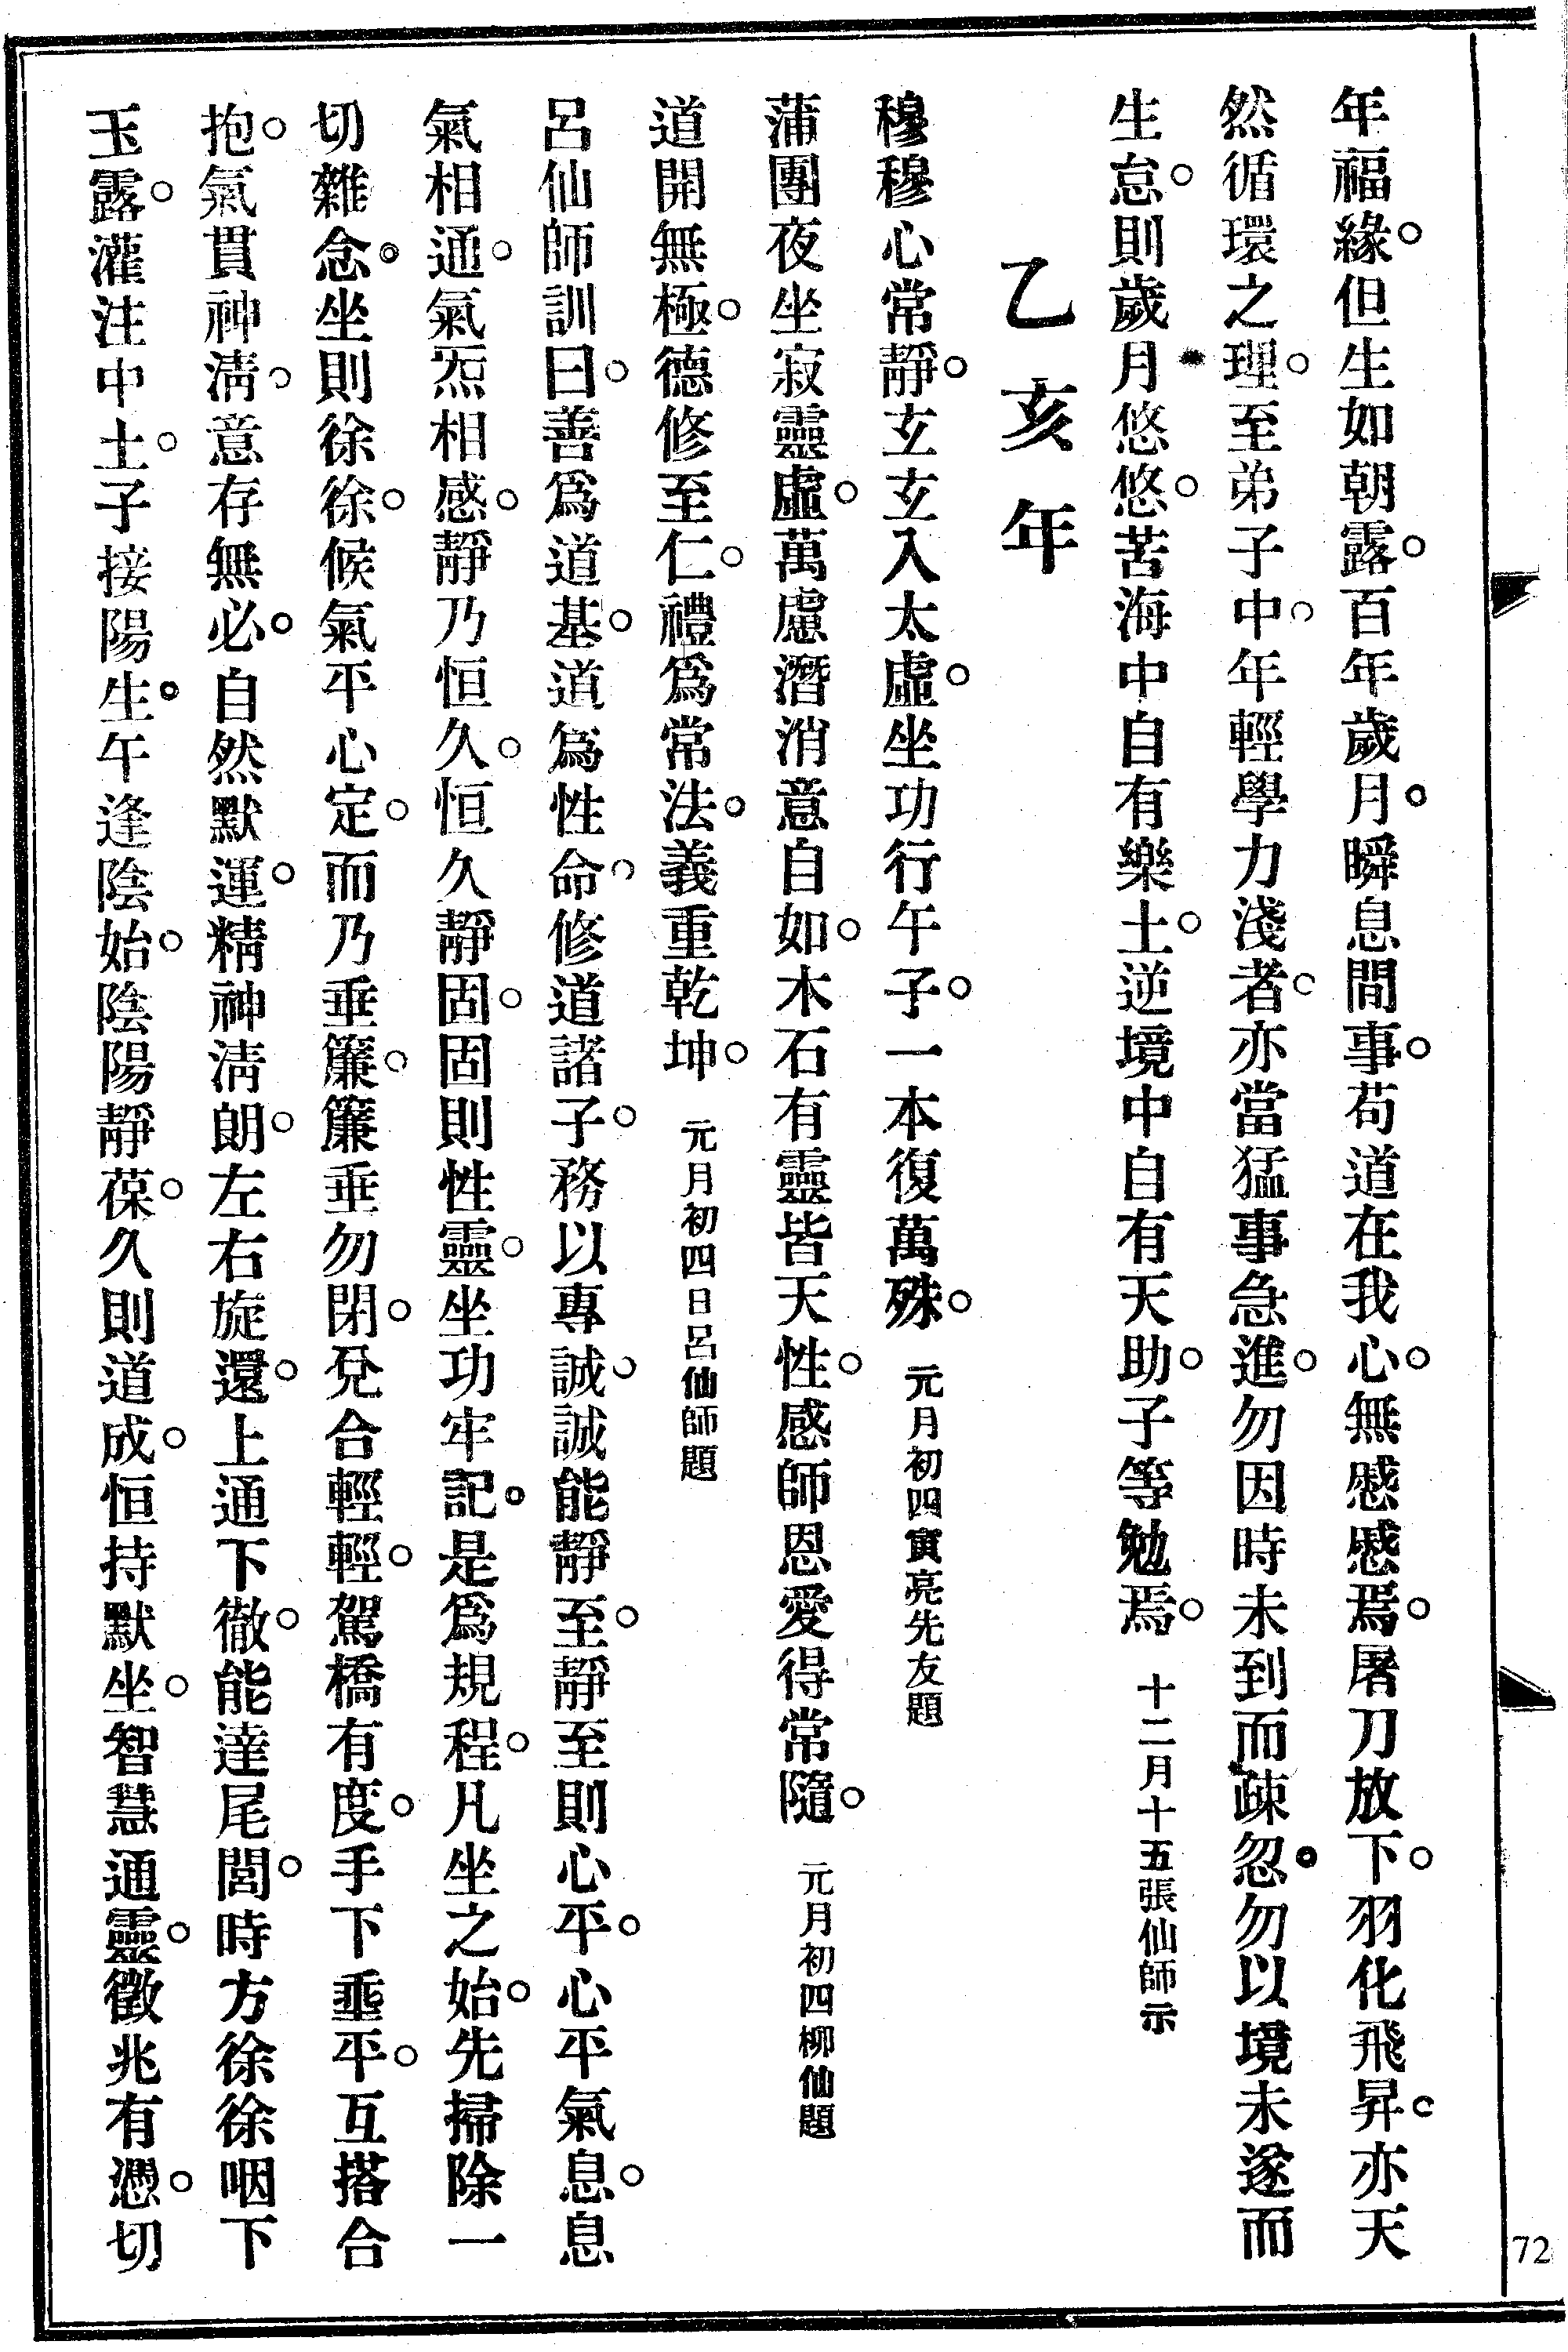 年福緣。但生如朝露。百年歲月。瞬息間事。苟道在我心。無慼慼焉。屠刀放下。羽化飛昇。亦天
然循環之理。至弟子中。年輕學力淺者。亦當猛事急進。勿因時未到而疎忽。勿以境未遂而
生怠。則歲月悠悠。苦海中自有樂土。逆境中自有天助。子等勉焉。 十二月十五張仙師示
乙亥年
穆穆心常靜。玄玄入太虛。坐功行午子。一本復萬殊。 元月初四寅亮先友題
蒲團夜坐寂靈虛。萬慮潛消意自如。木石有靈皆天性。感師恩愛得常隨。 元月初四柳仙題
道開無極。德修至仁。禮爲常法。義重乾坤。 元月初四日呂仙師題
呂仙師訓曰。善爲道基。道爲性命。修道諸子。務以專誠。誠能靜至。靜至則心平。心平氣息。息
氣相通。氣炁相感。靜乃恒久。恒久靜固。固則性靈。坐功牢記。是爲規程。凡坐之始。先掃除一
切雜念。坐則徐徐。候氣平心定。而乃垂簾。簾垂勿閉。兌合輕輕。駕橋有度。手下垂平。互搭合
抱。氣貫神淸。意存無必。自然默運。精神淸朗。左右旋還。上通下徹。能達尾閭。時方徐徐咽下
玉露。灌注中土。子接陽生。午逢陰始。陰陽靜葆。久則道成。恒持默坐。智慧通靈。徵兆有憑。切
72